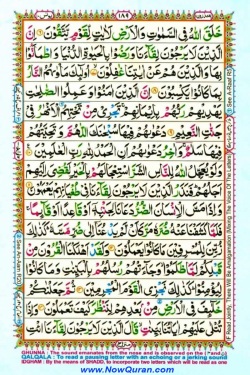 ١٨٩
خَلَقَ اللّٰهُ فِي السَّمٰوٰتِ وَالْاَرْضِ لَاٰيٰتٍ لِّقَوْمٍ يَّتَّقُوْنَ اِنَّ
الَّذِيْنَ لَا يَرْجُوْنَ لِقَآءَنَا وَرَضُوْا بِالْحَيٰوةِ الدُّنْيَا وَاطْمَاَنُّوْا
بِهَا وَالَّذِيْنَ هُمْ عَنْ اٰيٰتِنَا غٰفِلُوْنَ اُولٰٓئِكَ مَاْوٰىهُمُ النَّارُ
بِمَا كَانُوْا يَكْسِبُوْنَ اِنَّ الَّذِيْنَ اٰمَنُوْا وَعَمِلُوا الصّٰلِحٰتِ
يَهْدِيْهِمْ رَبُّهُمْ بِاِيْمَانِهِمْ تَجْرِيْ مِنْ تَحْتِهِمُ الْاَنْهٰرُ فِيْ
جَنّٰتِ النَّعِيْمِ دَعْوٰىهُمْ فِيْهَا سُبْحٰنَكَ اللّٰهُمَّ وَتَحِيَّتُهُمْ
فِيْهَا سَلٰمٌ وَاٰخِرُ دَعْوٰىهُمْ اَنِ الْحَمْدُ لِلّٰهِ رَبِّ الْعٰلَمِيْنَ
وَلَوْ يُعَجِّلُ اللّٰهُ لِلنَّاسِ الشَّرَّ اسْتِعْجَالَهُمْ بِالْخَيْرِ لَقُضِيَ اِلَيْهِمْ
اَجَلُهُمْ فَنَذَرُ الَّذِيْنَ لَا يَرْجُوْنَ لِقَآءَنَا فِيْ طُغْيَانِهِمْ يَعْمَهُوْنَ
وَاِذَا مَسَّ الْاِنْسَانَ الضُّرُّ دَعَانَا لِجَنْۢبِهٖٓ اَوْ قَاعِدًا اَوْ قَآئِمًا
فَلَمَّا كَشَفْنَا عَنْهُ ضُرَّهٗ مَرَّ كَاَنْ لَّمْ يَدْعُنَآ اِلٰى ضُرٍّ مَّسَّهٗ كَذٰلِكَ
زُيِّنَ لِلْمُسْرِفِيْنَ مَا كَانُوْا يَعْمَلُوْنَ وَلَقَدْ اَهْلَكْنَا الْقُرُوْنَ مِنْ
قَبْلِكُمْ لَمَّا ظَلَمُوْا وَجَآءَتْهُمْ رُسُلُهُمْ بِالْبَيِّنٰتِ وَمَا كَانُوْا
لِيُؤْمِنُوْا كَذٰلِكَ نَجْزِي الْقَوْمَ الْمُجْرِمِيْنَ ثُمَّ جَعَلْنٰكُمْ
خَلٰٓئِفَ فِي الْاَرْضِ مِنْ بَعْدِهِمْ لِنَنْظُرَ كَيْفَ تَعْمَلُوْنَ وَاِذَا
تُتْلٰى عَلَيْهِمْ اٰيَاتُنَا بَيِّنٰتٍ قَالَ الَّذِيْنَ لَا يَرْجُوْنَ لِقَآءَنَا ائْتِ
GHUNNA : The sound emanates from the nose and is observed on the
QALQALA : To read a pausing letter with an echoing or a jerking sound
IDGHAM : By the means of SHADD, to incorporate two letters which will be read as one
www.NowQuran.com